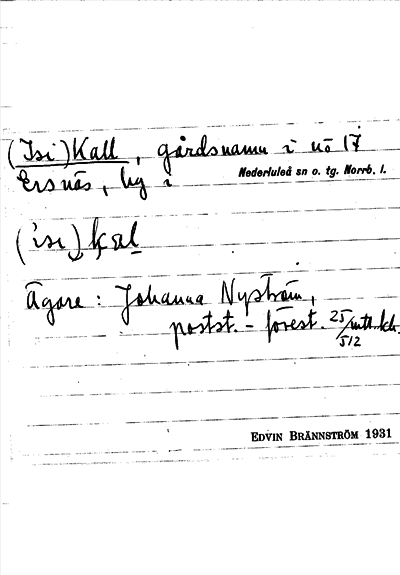 (Isi)Kall, gårdsnamn i nº 17
Ersnäs, by i Nederluleå sn o. tg. Norrb. l.
(isi) kal
Ägare: Johanna Nyström,
postst.-förest. 25/512 mtl.
EDVIN BRÄNNSTRÖM 1931